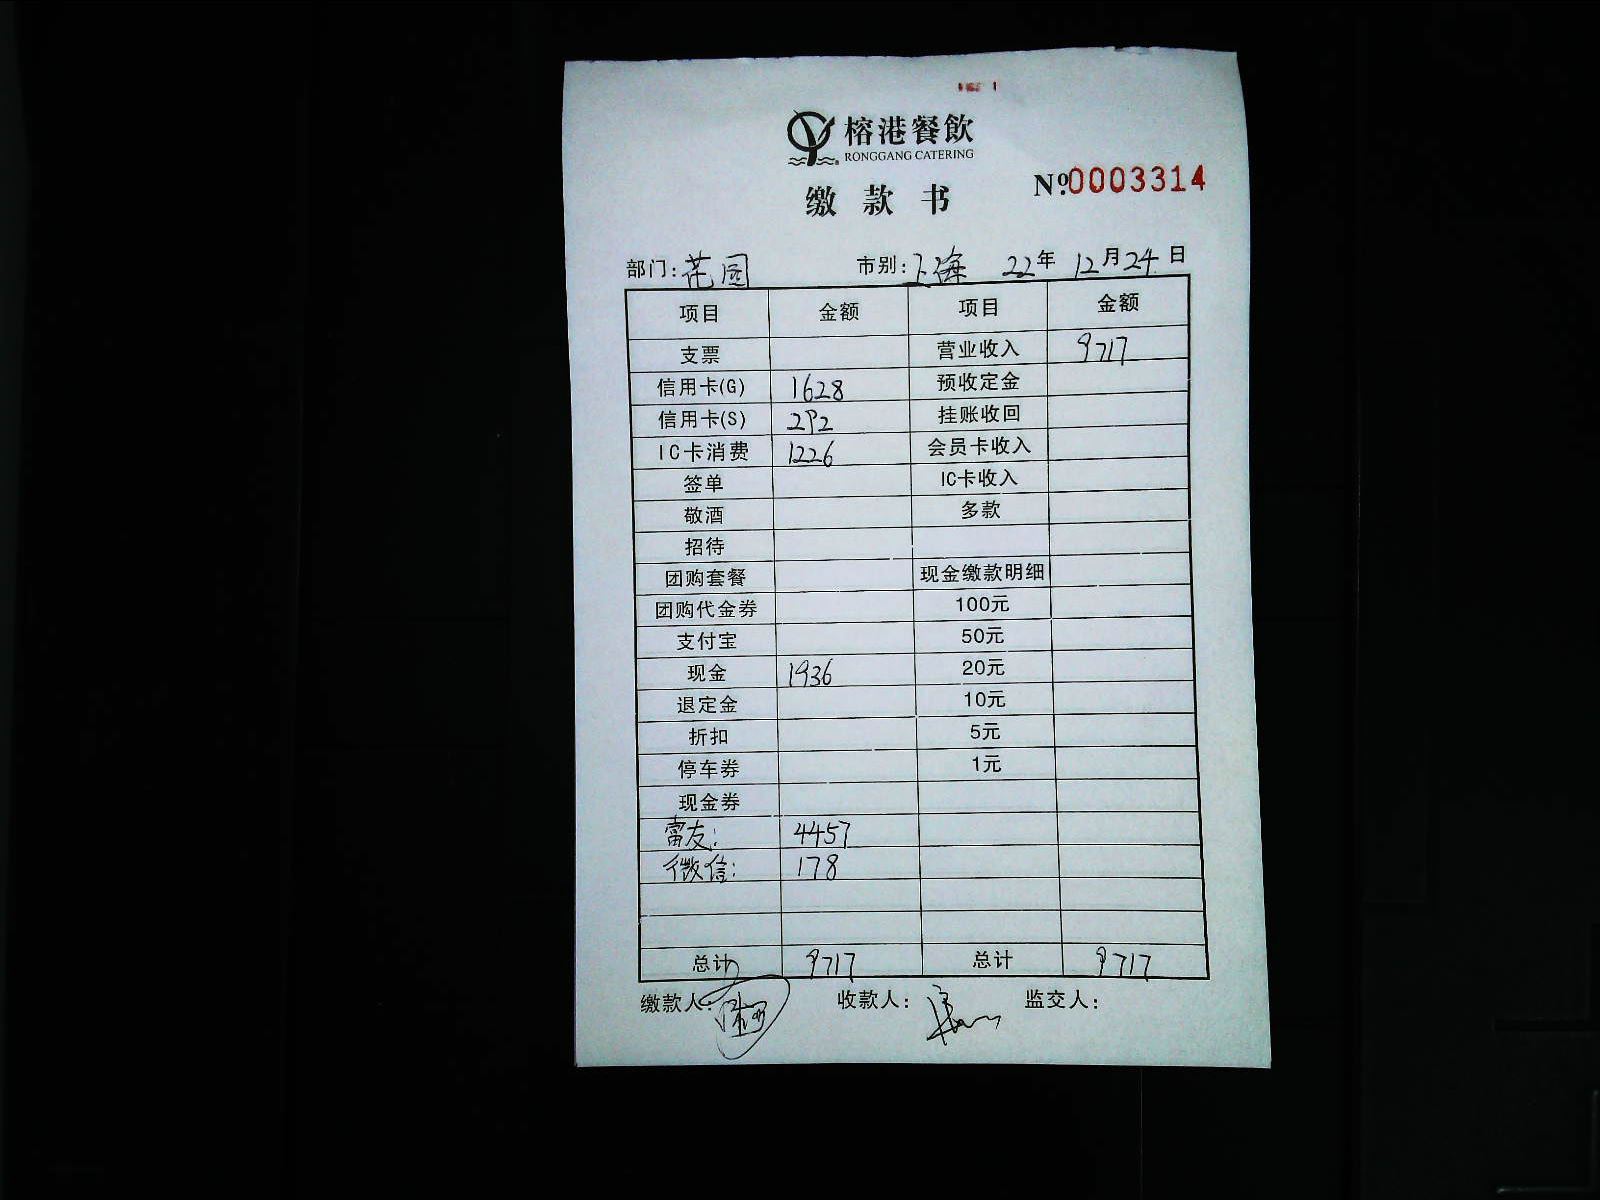 榕港餐飲
RONGGANG CATERING
缴款书
№0003314
部门：花园 市别：上海 22年12月24日
项目 金额 项目 金额
支票 营业收入 9717
信用卡(G) 1628 预收定金
信用卡(S) 292 挂账收回
IC卡消费 1226 会员卡收入
签单 IC卡收入
敬酒 多款
招待
团购套餐 现金缴款明细
团购代金券 100元
支付宝 50元
现金 1936 20元
退定金 10元
折扣 5元
停车券 1元
现金券
雷友： 4457
微信： 178
总计 9717 总计 9717
缴款人： 收款人： 监交人：